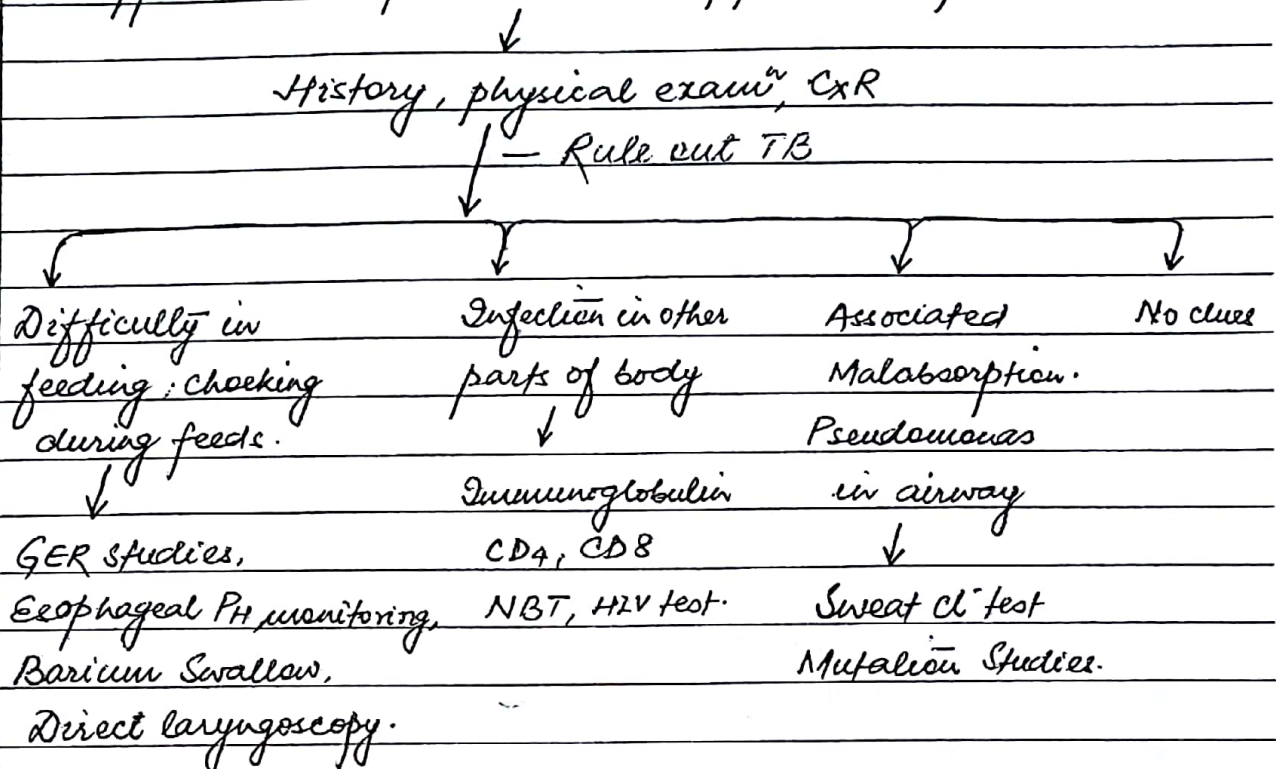 History, physical examⁿ, CxR
— Rule out TB
Difficulty in
feeding; choeking
during feeds.
GER studies,
Esophageal PH monitoring,
Barium Swallow,
Direct laryngoscopy.
Infection in other
parts of body
Immunoglobulin
CD4, CD8
NBT, HIV test.
Associated
Malabsorption.
Pseudomonas
in airway
Sweat Cl⁻ test
Mutation Studies.
No clues